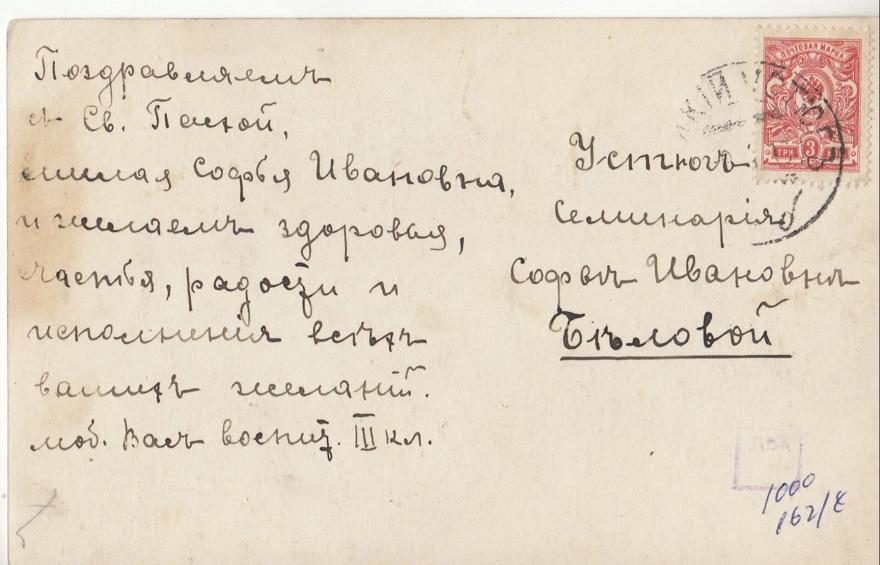 Поздравляемъ
съ Св. Пасхой,
милая Софья Ивановна,
и желаемъ здоровья,
счастья, радости и
исполненія всѣхъ
вашихъ желаній.
люб. Васъ воспит. III кл.
ПОЧТОВАЯ МАРКА
ТРИ 3
Устюгъ
Семинарія
Софьѣ Ивановнѣ
Бѣловой
1000
162/